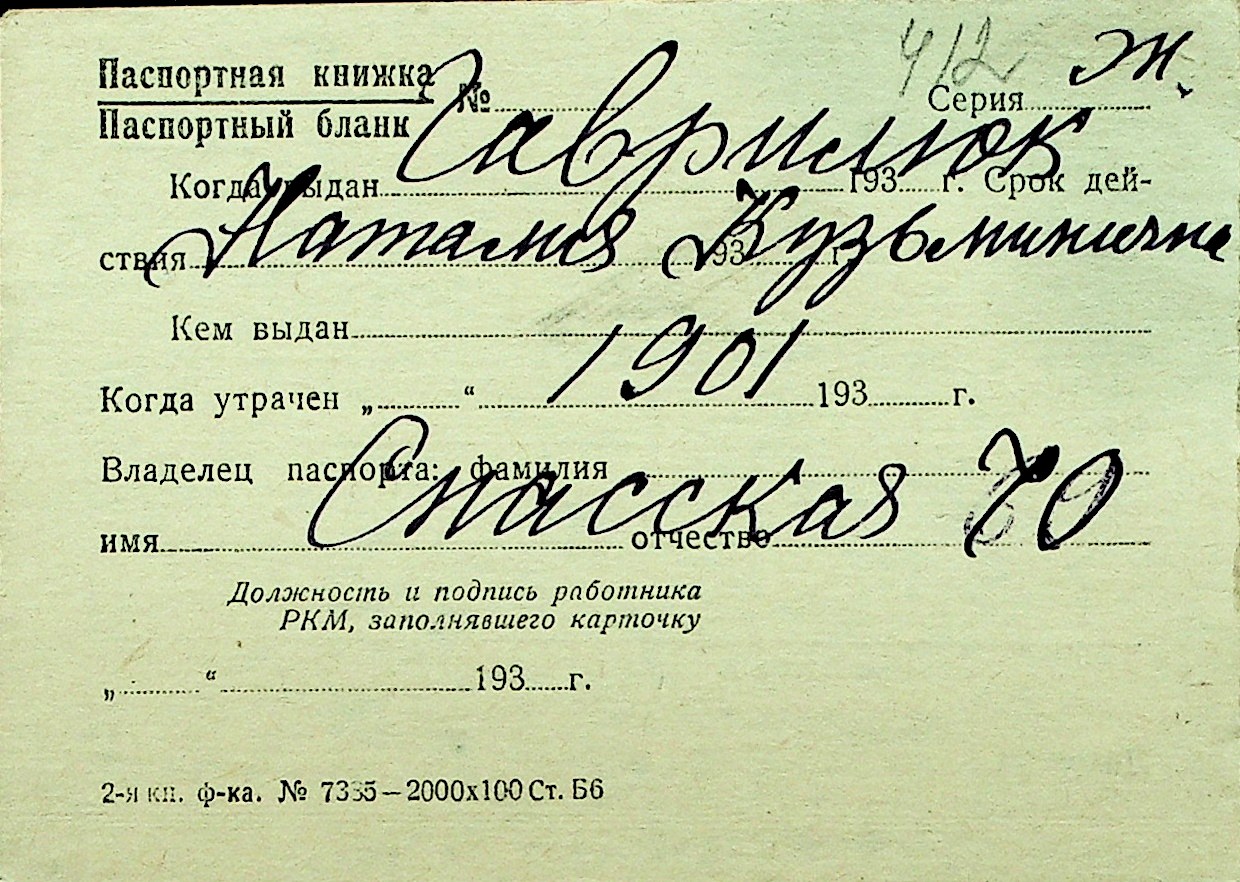 412 Ж.
Паспортная книжка
Паспортный бланк № Серия
Гаврилюк
Когда выдан 193 г. Срок дей-
ствия 193 г.
Наталия Кузьминична
Кем выдан
1901
Когда утрачен „ “ 193 г.
Владелец паспорта: фамилия
Спасская 70
имя отчество
Должность и подпись работника
РКМ, заполнявшего карточку
„ “ 193 г.
2-я кн. ф-ка. № 7335—2000х100 Ст. Б6